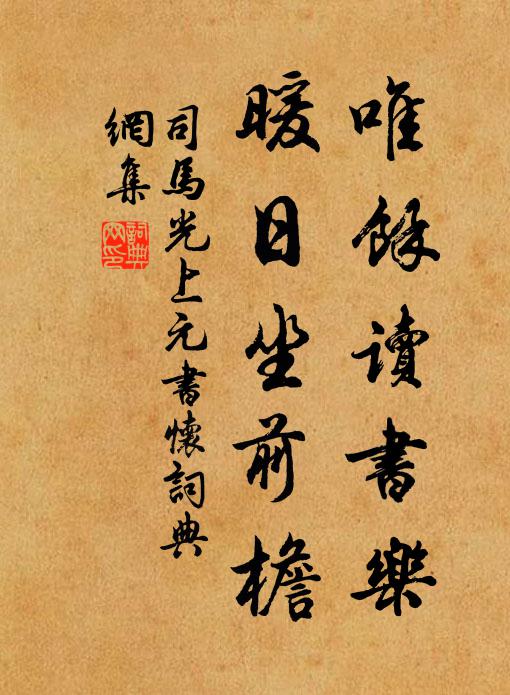 唯餘讀書樂
暖日坐前檐
司馬光上元書懷詞典
網集
詞典
網印